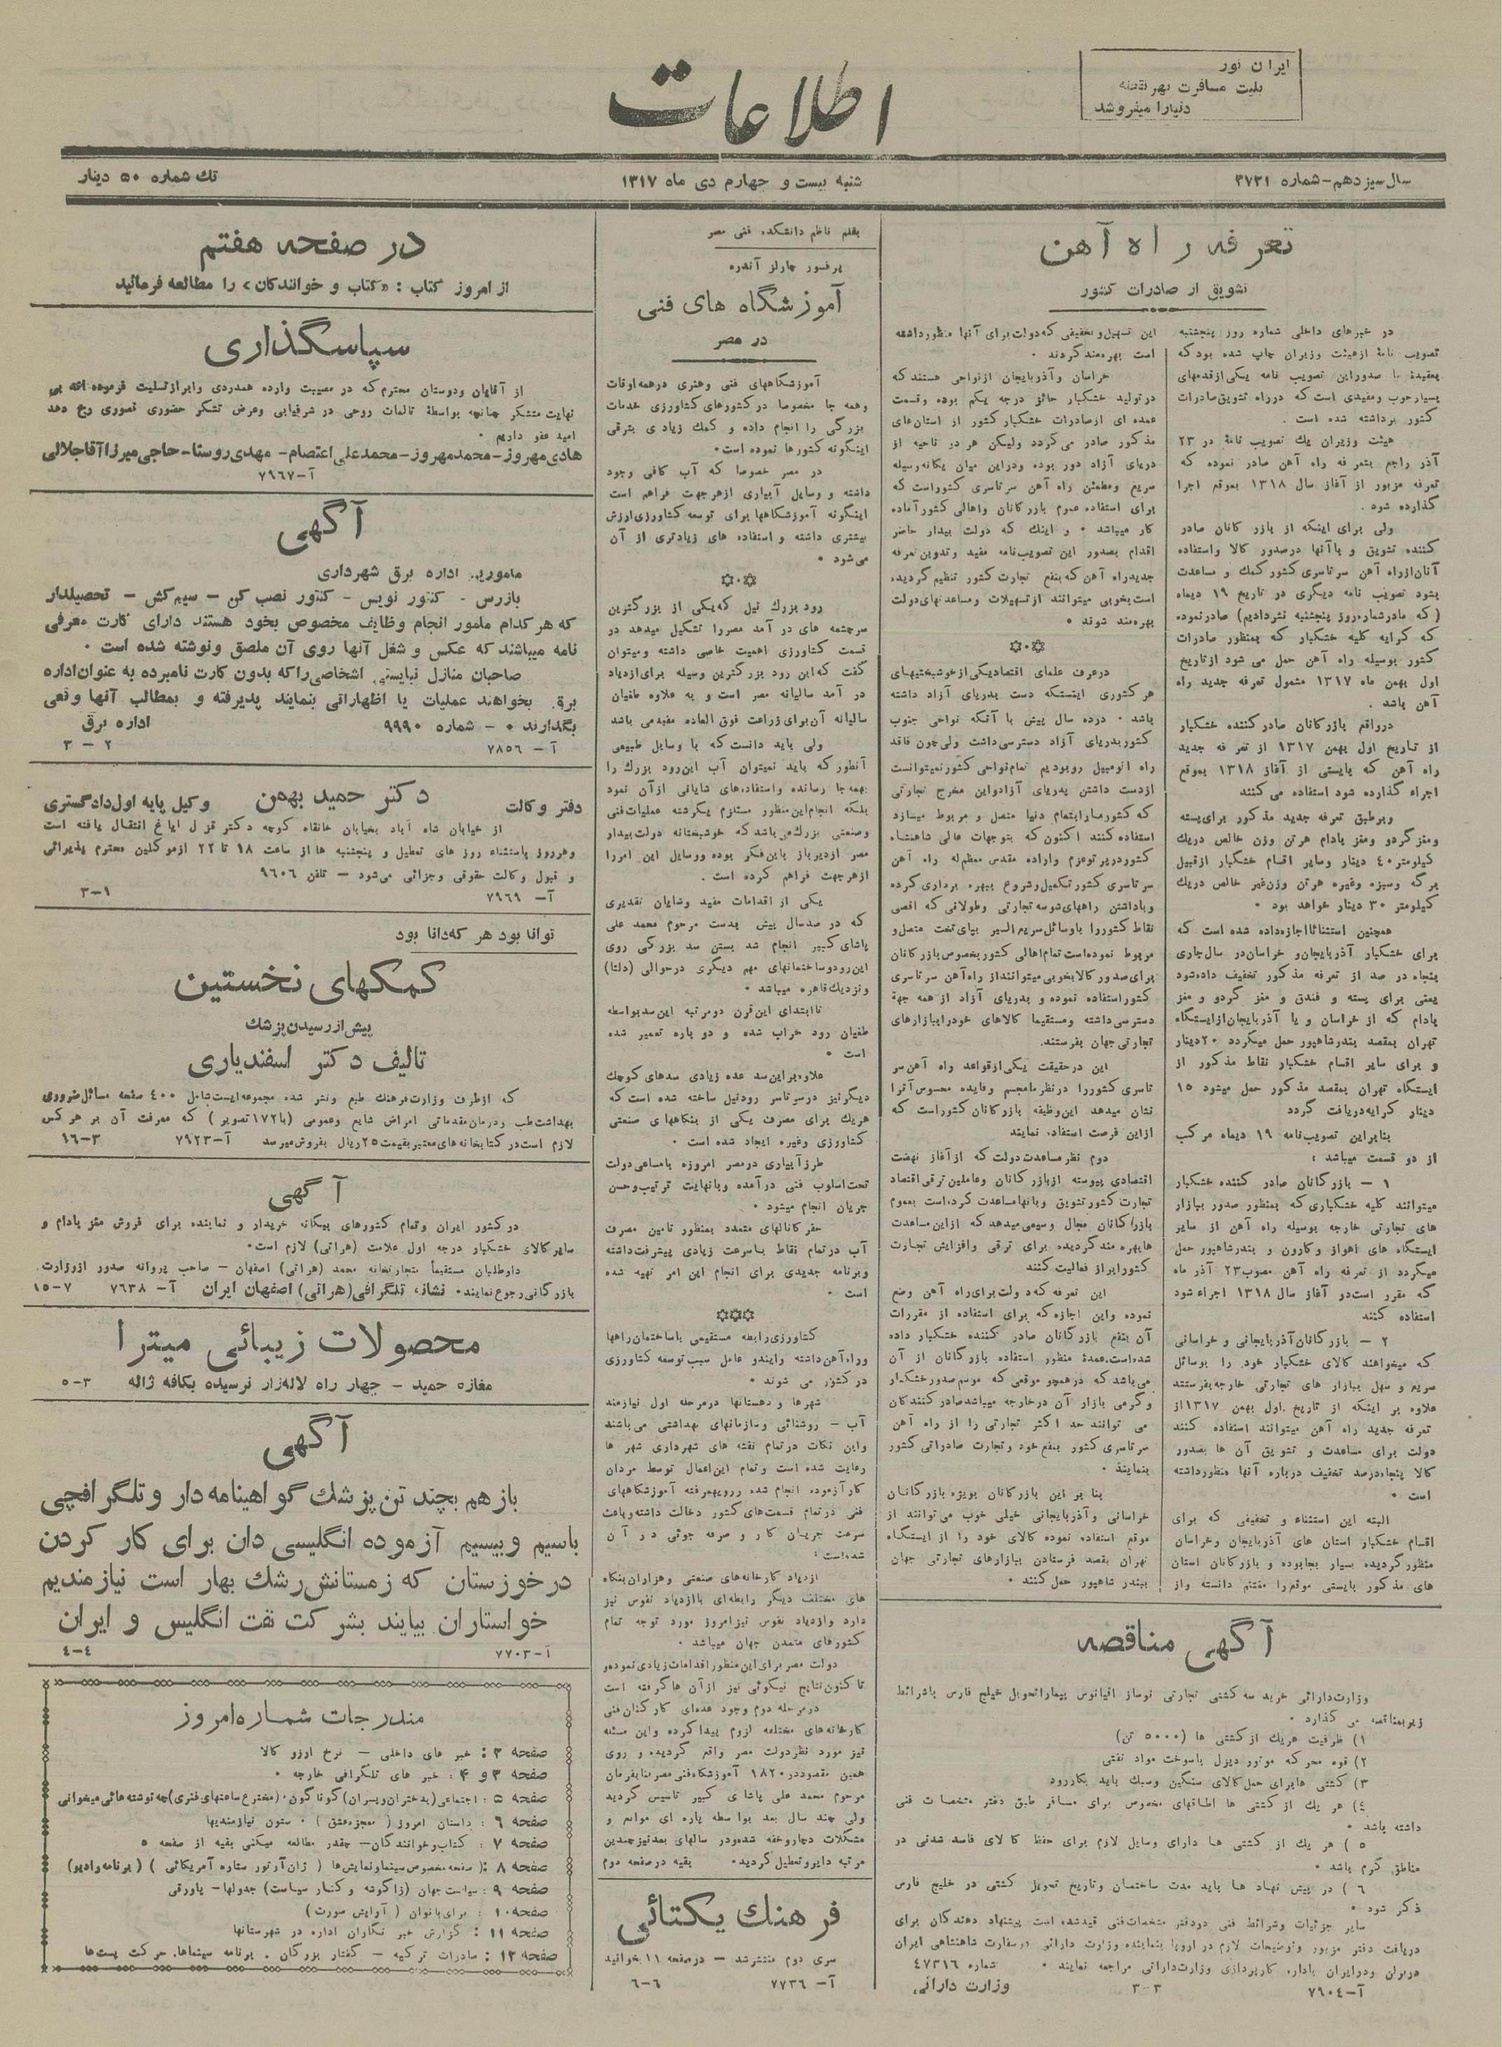 ایران تور
بلیت مسافرت بهر نقطه
دنیا را میفروشد
اطلاعات
سال سیزدهم - شماره ۳۷۳۱
شنبه بیست و چهارم دی ماه ۱۳۱۷
تك شماره ۵۰ دینار
تعرفه راه آهن
تشویق از صادرات کشور
در خبرهای داخلی شماره روز پنجشنبه
تصویب نامهٔ از هیئت وزیران چاپ شده بود که
بعقیدهٔ ما صدور این تصویب نامه یکی از قدمهای
بسیار خوب و مفیدی است که در راه تشویق صادرات
کشور برداشته شده است .
هیئت وزیران یك تصویب نامهٔ در ۲۳
آذر راجع بتعرفه راه آهن صادر نموده که
تعرفه مزبور از آغاز سال ۱۳۱۸ بموقع اجرا
گذارده شود .
ولی برای اینکه از بازرگانان صادر
کننده تشویق و با آنها در صدور کالا و استفاده
آنان از راه آهن سرتاسری کشور کمك و مساعدت
بشود تصویب نامه دیگری در تاریخ ۱۹ دیماه
( که ما در شماره روز پنجشنبه نشر دادیم) صادر نموده
که کرایه کلیه خشکبار که بمنظور صادرات
کشور بوسیله راه آهن حمل می شود از تاریخ
اول بهمن ماه ۱۳۱۷ مشمول تعرفه جدید راه
آهن باشد .
در واقع بازرگانان صادر کننده خشکبار
از تاریخ اول بهمن ۱۳۱۷ از تعرفه جدید
راه آهن که بایستی از آغاز ۱۳۱۸ بموقع
اجراء گذارده شود استفاده می کنند
و بر طبق تعرفه جدید مذکور برای پسته
و مغز گردو و مغز بادام هر تن وزن خالص در یك
کیلومتر ۴۰ دینار و سایر اقسام خشکبار از قبیل
برگه و سبزه و غیره هر تن وزن غیر خالص در یك
کیلومتر ۳۰ دینار خواهد بود .
همچنین استثنائا اجازه داده شده است که
برای خشکبار آذربایجان و خراسان در سال جاری
پنجاه در صد از تعرفه مذکور تخفیف داده شود
یعنی برای پسته و فندق و مغز گردو و مغز
بادام که از خراسان و یا آذربایجان از ایستگاه
تهران بمقصد بندر شاهپور حمل میگردد ۲۰ دینار
و برای سایر اقسام خشکبار نقاط مذکور از
ایستگاه تهران بمقصد مذکور حمل میشود ۱۵
دینار کرایه دریافت گردد
بنابراین تصویب نامه ۱۹ دیماه مرکب
از دو قسمت میباشد :
۱ – بازرگانان صادر کننده خشکبار
میتوانند کلیه خشکباری که بمنظور صدور ببازار
های تجارتی خارجه بوسیله راه آهن از سایر
ایستگاه های اهواز و کارون و بندر شاهپور حمل
میگردد از تعرفه راه آهن مصوب ۲۳ آذر ماه
که مقرر است در آغاز سال ۱۳۱۸ اجراء شود
استفاده کنند
۲ – بازرگانان آذربایجانی و خراسانی
که میخواهند کالای خشکبار خود را بوسائل
سریع و سهل ببازار های تجارتی خارجه بفرستند
علاوه بر اینکه از تاریخ اول بهمن ۱۳۱۷ از
تعرفه جدید راه آهن میتوانند استفاده کنند
دولت برای مساعدت و تشویق آن ها بصدور
کالا پنجاه درصد تخفیف درباره آنها منظور داشته
است .
البته این استثناء و تخفیفی که برای
اقسام خشکبار استان های آذربایجان و خراسان
منظور گردیده بسیار بجا بوده و بازرگانان استان
های مذکور بایستی موقع را مغتنم دانسته و از
این تسهیل و تخفیفی که دولت برای آنها منظور داشته
است بهره مند گردند .
خراسان و آذربایجان از نواحی هستند که
در تولید خشکبار حائز درجه یکم بوده و قسمت
عمده ای از صادرات خشکبار کشور از استان های
مذکور صادر می گردد ولیکن هر دو ناحیه از
دریای آزاد دور بوده و در این میان یگانه وسیله
سریع و مطمئن راه آهن سرتاسری کشور است که
برای استفاده عموم بازرگانان و اهالی کشور آماده
کار میباشد . و اینك که دولت بیدار حاضر
اقدام بصدور این تصویب نامه مفید و تدوین تعرفه
جدید راه آهن که بنفع تجارت کشور تنظیم گردیده
است بخوبی میتوانند از تسهیلات و مساعدتهای دولت
بهره مند شوند .
در عرف علمای اقتصاد یکی از خوشبختیهای
هر کشوری اینستکه دست بدریای آزاد داشته
باشد . در ده سال پیش با آنکه نواحی جنوب
کشور بدریای آزاد دسترسی داشت ولی چون فاقد
راه اتومبیل رو بودیم تمام نواحی کشور نمیتوانست
از دست داشتن بدریای آزاد و این مخرج تجارتی
که کشور ما را بتمام دنیا متصل و مربوط میسازد
استفاده کنند اکنون که بتوجهات عالی شاهنشاه
کشور در پرتو عزم و اراده مقدس معظم له راه آهن
سرتاسری کشور تکمیل و شروع ببهره برداری کرده
و با داشتن راههای شوسه تجارتی و طولانی که اقصی
نقاط کشور را با وسائل سریع السیر بپای تخت متصل و
مربوط نموده است تمام اهالی کشور بخصوص بازرگانان
برای صدور کالا بخوبی میتوانند از راه آهن سرتاسری
کشور استفاده نموده و بدریای آزاد از همه جهة
دسترسی داشته و مستقیما کالاهای خود را ببازارهای
تجارتی جهان بفرستند.
این در حقیقت یکی از قواعد راه آهن سر
تاسری کشور را در نظر ما مجسم و فایده محسوس آنرا
نشان میدهد این وظیفه بازرگانان کشور است که
از این فرصت استفاده نمایند
دوم نظر مساعدت دولت که از آغاز نهضت
اقتصادی پیوسته از بازرگانان و عاملین ترقی اقتصاد
تجارت کشور تشویق و بآنها مساعدت کرده است بعموم
بازرگانان مجال وسیعی میدهد که از این مساعدت
ها بهره مند گردیده برای ترقی و افزایش تجارت
کشور ایران فعالیت کنند
این تعرفه که دولت برای راه آهن وضع
نموده و این اجازه که برای استفاده از مقررات
آن بنفع بازرگانان صادر کننده خشکبار داده
شده است، عمدهٔ منظور استفاده بازرگانان از آن
می باشد که در همچو موقعی که موسم صدور خشکبار
و گرمی بازار آن در خارجه میباشد صادر کنندگان
می توانند حد اکثر تجارتی را از راه آهن
سرتاسری کشور بنفع خود و تجارت صادراتی کشور
بنمایند .
بنا بر این بازرگانان بویژه بازرگانان
خراسانی و آذربایجانی خیلی خوب می توانند از
موقع استفاده نموده کالای خود را از ایستگاه
تهران بقصد فرستادن ببازارهای تجارتی جهان
ببندر شاهپور حمل کنند .
آگهی مناقصه
وزارت دارائی خرید سه کشتی تجارتی نوساز اقیانوس پیما را تحویل خلیج فارس با شرائط
زیر بمناقصه می گذارد .
۱) ظرفیت هر یك از کشتی ها (۵۰۰۰ تن)
۲) قوه محرکه موتور دیزل با سوخت مواد نفتی
۳) کشتی ها برای حمل کالای سنگین و سبك باید بکار رود
۴) هر یك از کشتی ها اطاقهای مخصوص برای مسافر طبق دفتر مشخصات فنی
داشته باشد .
۵ ) هر یك از کشتی ها دارای وسایل لازم برای حفظ کالای فاسد شدنی در
مناطق گرم باشد .
۶ ) در پیش نهاد ها باید مدت ساختمان و تاریخ تحویل کشتی در خلیج فارس
ذکر شود .
سایر جزئیات و شرائط فنی در دفتر مشخصات فنی قید شده است پیشنهاد دهندگان برای
دریافت دفتر مزبور و توضیحات لازم در اروپا بنماینده وزارت دارائی در سفارت شاهنشاهی ایران
در برلن و در ایران باداره کارپردازی وزارت دارائی مراجعه نمایند . شماره ۴۷۳۱۶
آ – ۷۹۰۴ ۳-۳ وزارت دارائی
بقلم ناظم دانشکده فنی مصر
پرفسور چارلز آندره
آموزشگاه های فنی
در مصر
آموزشگاههای فنی و هنری در همه اوقات
و همه جا مخصوصا در کشورهای کشاورزی خدمات
بزرگی را انجام داده و کمك زیادی بترقی
اینگونه کشورها نموده است .
در مصر خصوصا که آب کافی وجود
داشته و وسایل آبیاری از هر جهت فراهم است
اینگونه آموزشگاهها برای توسعه کشاورزی ارزش
بیشتری داشته و استفاده های زیادتری از آن
می شود .
رود بزرك نیل که یکی از بزرگترین
سرچشمه های در آمد مصر را تشکیل میدهد در
قسمت کشاورزی اهمیت خاصی داشته و میتوان
گفت که این رود بزرگترین وسیله برای ازدیاد
در آمد سالیانه مصر است و به علاوه طغیان
سالیانه آن برای زراعت فوق العاده مفید می باشد
ولی باید دانست که با وسایل طبیعی
آنطور که باید نمیتوان آب این رود بزرك را
بهمه جا رسانده و استفاده شایانی از آن نمود
بلکه انجام این منظور مستلزم یکرشته عملیات فنی
و صنعتی بزرك می باشد که خوشبختانه دولت بیدار
مصر از دیر باز باین فکر بوده و وسایل این امر را
از هر جهت فراهم کرده است .
یکی از اقدامات مفید و شایان تقدیری
که در صد سال پیش بدست مرحوم محمد علی
پاشای کبیر انجام شد بستن سد بزرگی روی
این رود و ساختمانهای مهم دیگری در حوالی (دلتا)
و نزدیك قاهره میباشد .
تا ابتدای این قرن دو مرتبه این سد بواسطه
طغیان رود خراب شده و دو باره تعمیر شده
است .
علاوه بر این سد عده زیادی سدهای کوچك
دیگر نیز در سرتاسر رود نیل ساخته شده است که
هر یك برای مصرف یکی از بنگاههای صنعتی
کشاورزی وغیره ایجاد شده است .
طرز آبیاری در مصر امروزه با مساعی دولت
تحت اسلوب فنی در آمده و بانهایت ترتیب و حسن
جریان انجام میشود .
حفر کانالهای متعدد بمنظور تامین مصرف
آب در تمام نقاط با سرعت زیادی پیشرفت داشته
و برنامه جدیدی برای انجام این امر تهیه شده
است .
کشاورزی رابطه مستقیمی با ساختمان راهها
و راه آهن داشته و ایندو عامل سبب توسعه کشاورزی
در کشور می شوند .
شهرها و دهستانها در مرحله اول نیازمند
آب – روشنائی و سازمانهای بهداشتی می باشند
و این نکات در تمام نقشه های شهرداری شهر ها
رعایت شده است و تمام این اعمال توسط مردان
کار آزموده انجام شده و رویهمرفته آموزشگاههای
فنی در تمام قسمت های کشور دخالت داشته و باعث
سرعت جریان کار و صرفه جوئی در آن
شده است :
ازدیاد کارخانه های صنعتی و هزاران بنگاه
های مختلف دیگر رابطه ای با ازدیاد نفوس نیز
دارد و ازدیاد نفوس نیز امروز مورد توجه تمام
کشورهای متمدن جهان میباشد .
دولت مصر برای این منظور اقدامات زیادی نموده و
تا کنون نتایج نیکوئی نیز از آن ها گرفته است
در مرحله دوم وجود عده ای کارکنان فنی
کارخانه های مختلفه لزوم پیدا کرده و این مسئله
نیز مورد نظر دولت مصر واقع گردیده و روی
همین مقصود در ۱۸۲۰ آموزشگاه فنی مصر بنا بفرمان
مرحوم محمد علی پاشای کبیر تاسیس گردید
ولی چند سال بعد بواسطه پاره ای موانع و
مشکلات دچار وقفه شده و در سالهای بعد نیز چندین
مرتبه دایر و تعطیل گردید . بقیه در صفحه دوم
فرهنك یکتائی
سری دوم منتشر شد – در صفحه ۱۱ خوانید
آ – ۷۷۳۶ ۶-۶
در صفحه هفتم
از امروز کتاب : «کتاب و خوانندگان» را مطالعه فرمائید
سپاسگذاری
از آقایان و دوستان محترم که در مصیبت وارده همدردی و ابراز تسلیت فرموده اند بی
نهایت متشکر چنانچه بواسطهٔ تالمات روحی در شرفیابی و عرض تشکر حضوری قصوری رخ دهد
امید عفو داریم .
هادی مهروز – محمد مهروز – محمد علی اعتصام – مهدی روستا – حاجی میرزا آقا جلالی
آ – ۷۹۶۷
آگهی
مامورین اداره برق شهرداری
بازرس – کنتور نویس – کنتور نصب کن – سیم کش – تحصیلدار
که هر کدام مامور انجام وظایف مخصوص بخود هستند دارای کارت معرفی
نامه میباشند که عکس و شغل آنها روی آن ملصق و نوشته شده است .
صاحبان منازل نبایستی اشخاصی را که بدون کارت نامبرده به عنوان اداره
برق بخواهند عملیات یا اظهاراتی بنمایند پذیرفته و بمطالب آنها وقعی
بگذارند . – شماره ۹۹۹۰ اداره برق
آ – ۷۸۵۶ ۲ – ۳
دفتر وکالت دکتر حمید بهمن وکیل پایه اول دادگستری
از خیابان شاه آباد بخیابان خانقاه کوچه دکتر قزل ایاغ انتقال یافته است
و هر روز باستثناء روز های تعطیل و پنجشنبه ها از ساعت ۱۸ تا ۲۲ از موکلین محترم پذیرائی
و قبول وکالت حقوقی و جزائی می شود – تلفن ۹۶۰۶
آ – ۷۹۶۹ ۱-۳
توانا بود هر که دانا بود
کمکهای نخستین
پیش از رسیدن پزشك
تالیف دکتر اسفندیاری
که از طرف وزارت فرهنك طبع و نشر شده مجموعه ایست شامل ۴۰۰ صفحه مسائل ضروری
بهداشت طب و درمان مقدماتی امراض شایع و عمومی (با ۱۷۲ تصویر ) که معرفت آن بر هر کس
لازم است در کتابخانه های معتبر بقیمت ۲۵ ریال بفروش میرسد آ – ۷۹۲۳ ۳-۱۶
آگهی
در کشور ایران و تمام کشورهای بیگانه خریدار و نماینده برای فروش مغز بادام و
سایر کالای خشکبار درجه اول علامت (هراتی) لازم است .
داوطلبان مستقیماً بتجارتخانه محمد (هراتی) اصفهان – صاحب پروانه صدور از وزارت
بازرگانی رجوع نمایند . نشانی تلگرافی (هراتی) اصفهان ایران آ – ۷۶۳۸ ۷-۱۵
محصولات زیبائی میترا
مغازه حمید – چهار راه لاله زار نرسیده بکافه ژاله ۳-۵
آگهی
باز هم بچند تن پزشك گواهینامه دار و تلگرافچی
باسیم و بیسیم آزموده انگلیسی دان برای کار کردن
در خوزستان که زمستانش رشك بهار است نیازمندیم
خواستاران بیایند بشرکت نفت انگلیس و ایران
آ – ۷۷۰۳ ۴-۴
مندرجات شماره امروز
صفحه ۲ : خبر های داخلی – نرخ ارز و کالا
صفحه ۳ و ۴ : خبر های تلگرافی خارجه .
صفحه ۵ : اجتماعی (بدختران و پسران) گوناگون . (مخترع ساعتهای فنری) چه نوشته هائی میخوانی
صفحه ۶ : داستان امروز ( معجزه عشق ) . ستون نیازمندیها
صفحه ۷ : کتاب و خوانندگان – چقدر مطالعه میکنی بقیه از صفحه ۵
صفحه ۸ : ( صفحه مخصوص سینما و نمایش ها ( ژان آرتور ستاره آمریکائی ) ( برنامه رادیو)
صفحه ۹ : سیاست جهان (زاگوشه و کنار سیاست) جدولها – پاورقی
صفحه ۱۰ : برای بانوان ( آرایش صورت )
صفحه ۱۱ : گزارش خبر نگاران اداره در شهرستانها
صفحه ۱۲ : صادرات ترکیه – گفتار بزرگان . برنامه سینماها، حرکت پست ها